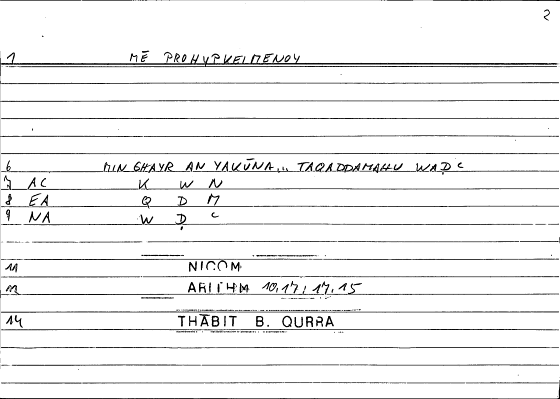 2
1 MĒ PROHYPKEIMENOY
6 MIN GHAYR AN YAKŪNA... TAQADDAMAHU WAḌ c
7 AC K W N
8 EA Q D M
9 NA W Ḍ c
11 NICOM
12 ARITHM 10,17; 17,15
14 THĀBIT B. QURRA